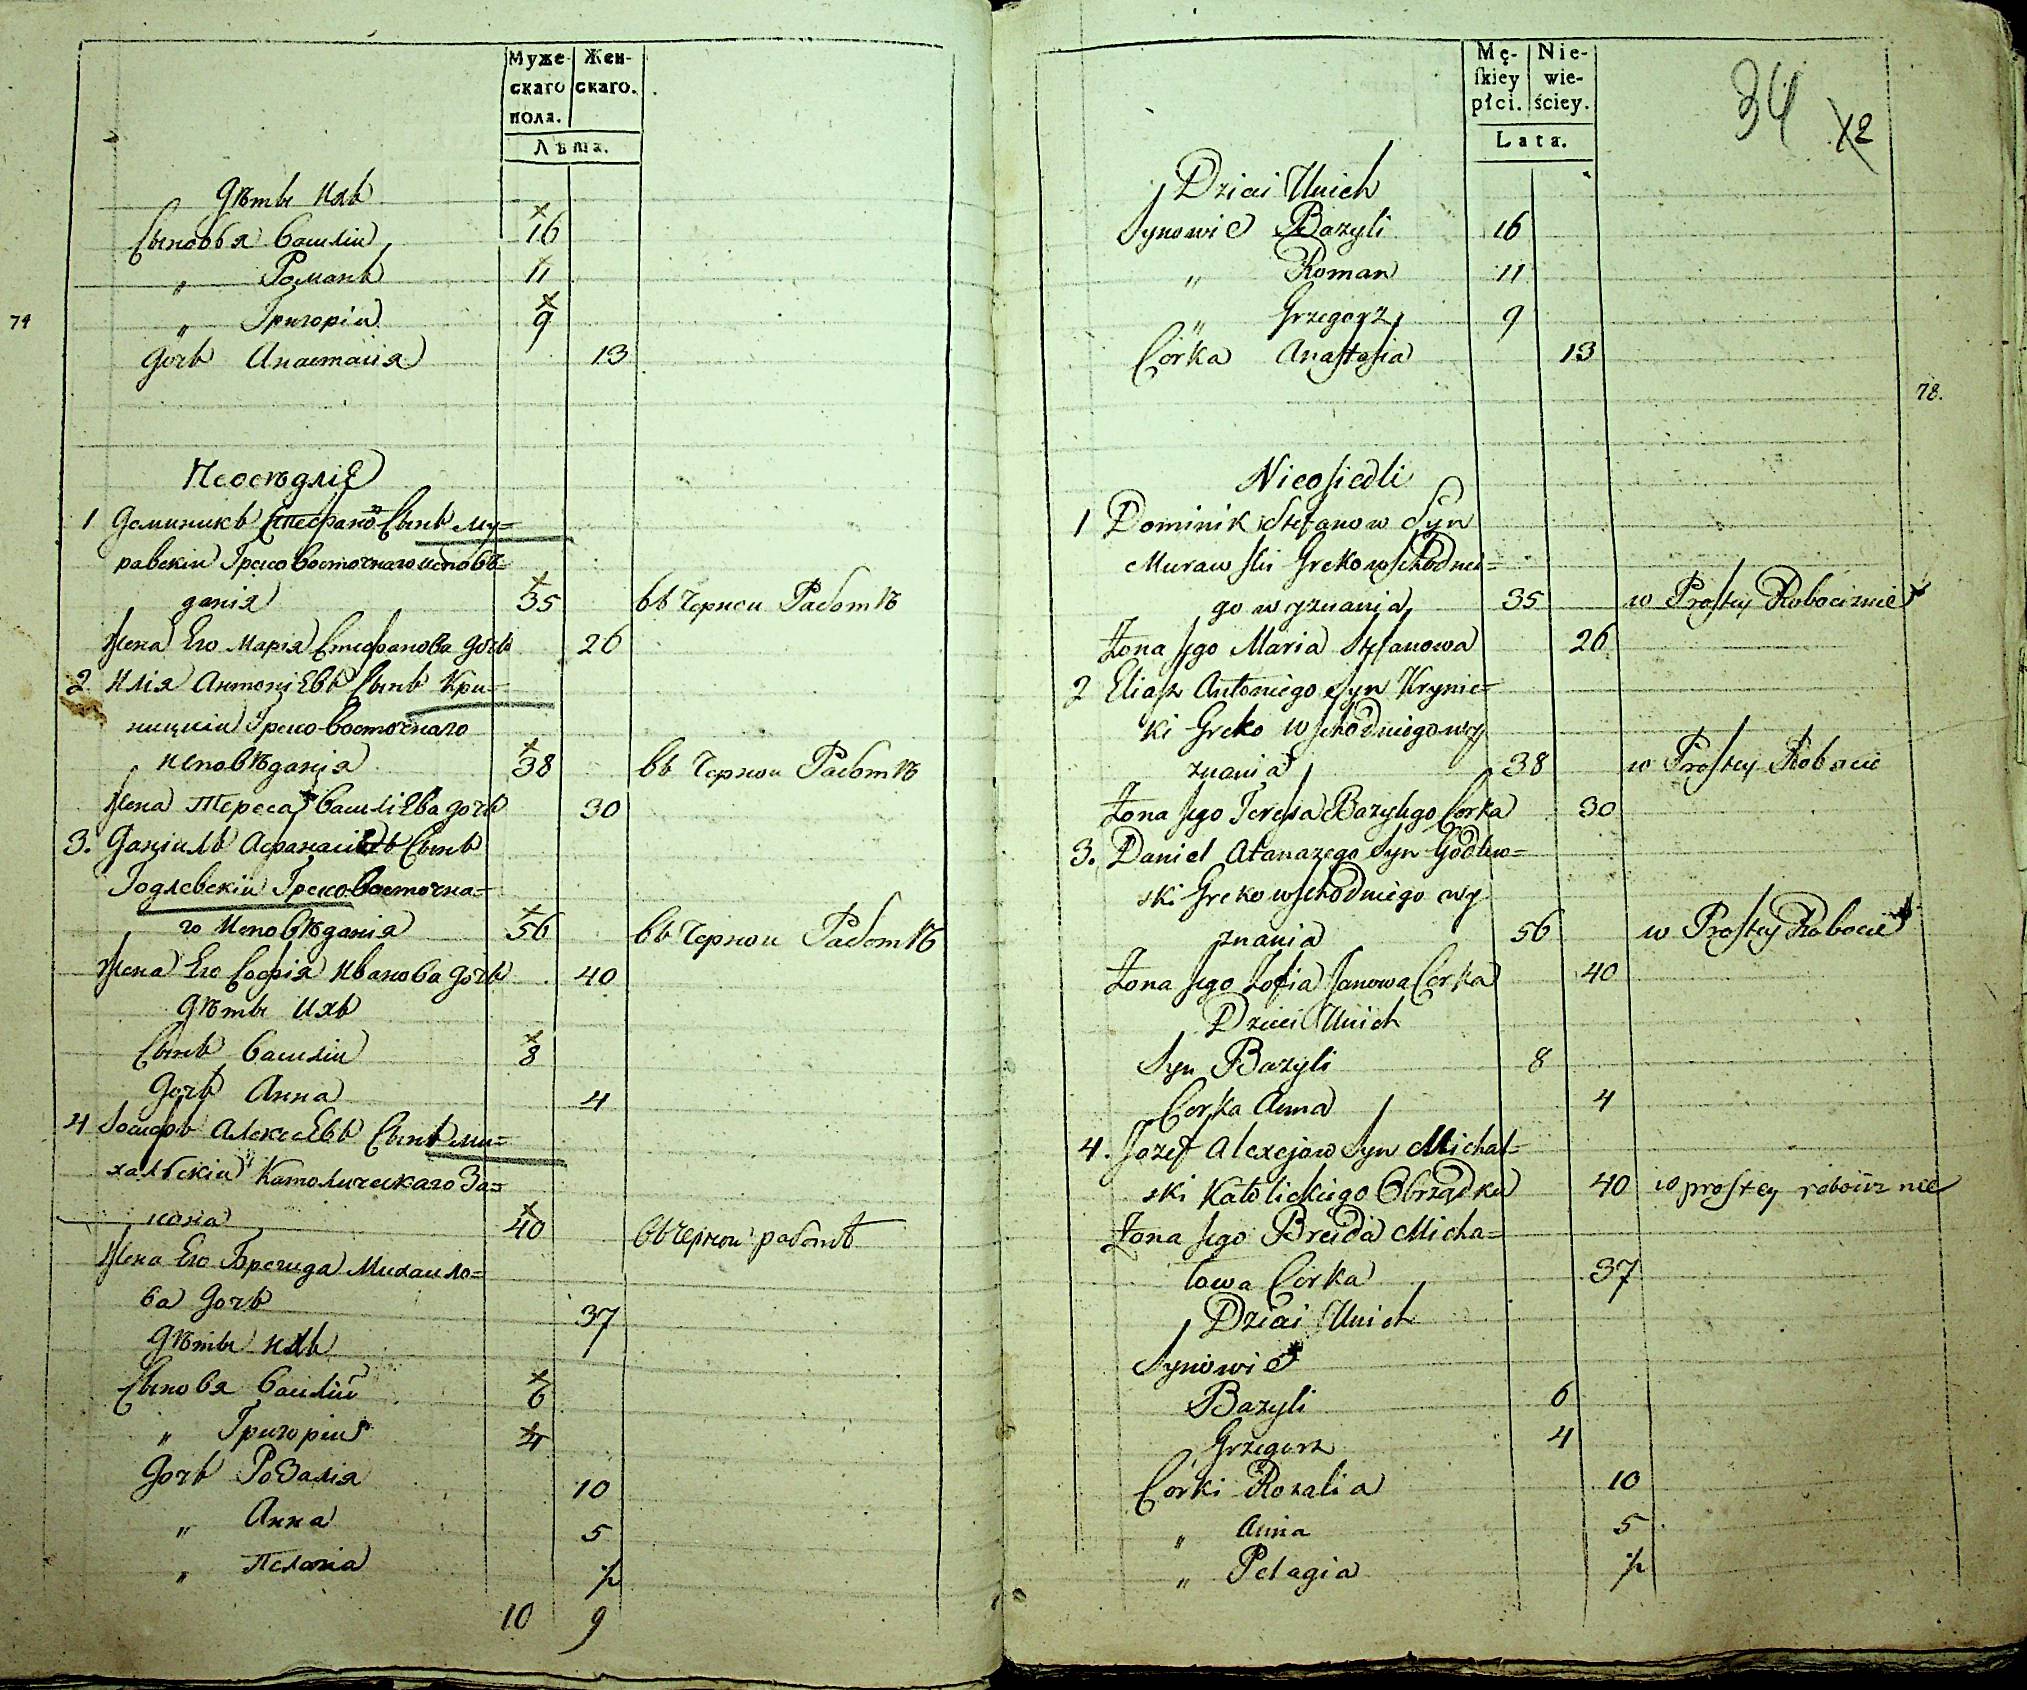 Муже-
скаго
пола.
Жен-
скаго.
Лѣта.
Дѣти ихъ
Сыновья Василій 16
„ Романъ 11
74
„ Григорій 9
Дочь Анастасія 13
Неосѣдліе
1 Доминикъ Стефановъ Сынъ Му=
равскій Грековосточнаго исповѣ=
данія 35 въ Черной Работѣ
Жена Его Марія Стефанова дочь 26
2 Илія Антоніевъ Сынъ Кри=
ницкій Греко-восточнаго
исповѣданія 38 въ Черной Работѣ
Жена Тереса Василіева дочь 30
3. Даніилъ Афанасіевъ Сынъ
Годлевскій Греко-Восточна=
го Исповѣданія 56 въ Черной Работѣ
Жена Его Софія Иванова дочь 40
Дѣти Ихъ
Сынъ Василій 8
Дочь Анна 4
4 Іосифъ Алексеевъ Сынъ Ми=
хальскій Католическаго За=
кона 40 въ черной работѣ
Жена Его Брегида Михайло=
ва Дочь 37
Дѣти ихъ
Сыновя Василій 6
„ Григорій 4
Дочь Розалія 10
„ Анна 5
„ Пелагіа ½
10 9
Mę-
ſkiey
płci.
Nie-
wie-
ściey.
Lata.
34 12
Dzieci Unich
Synowie Bazyli 16
„ Roman 11
„ Grzegorz 9
Córka Anastasia 13
78.
Nieosiedli
1 Dominik Stefanow Syn
Murawski Grekowschodnie=
go wyznania 35 w Prostey Robociznie
Żona Jego Maria Stefanowa 26
2 Eliasz Antoniego Syn Krynic=
ki Greko wschodniego wy
znania 38 w Prostey Robocie
Żona Jego Teresa Bazylego Corka 30
3. Daniel Atanazego Syn Godlew=
ski Greko wschodniego wy
znania 56 w Prostey Robocie
Żona Jego Zofia Janowa Corka 40
Dzieci Unich
Syn Bazyli 8
Corka Anna 4
4. Jozef Alexejow Syn Michal=
ski Katolickiego Obrządku 40 w prostey robociznie
Żona Jego Breida Micha=
łowa Córka 37
Dzieci Unich
Synowie
Bazyli 6
Grzegorz 4
Córki Rozalia 10
„ Anna 5
„ Pelagia ½